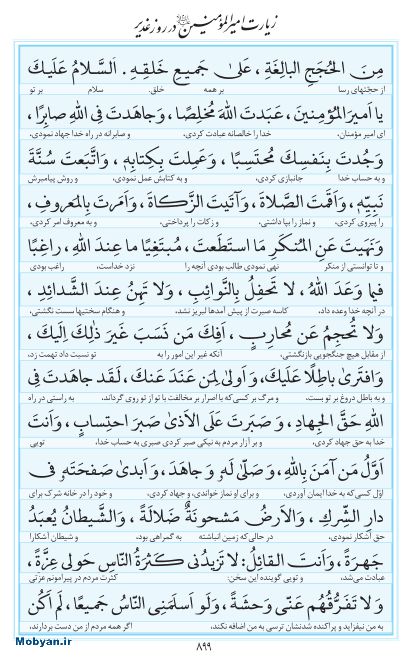 زیارت امیرالمؤمنین در روز غدیر
مِنَ الحُجَجِ البالِغَةِ ، عَلىٰ جَميعِ خَلقِهِ . اَلسَّلامُ عَلَيكَ
از حجتهای رسا بر همه خلق. سلام بر تو
يا اَميرَالمُؤمِنينَ ، عَبَدتَ اللهَ مُخلِصًا ، وَجاهَدتَ فِى اللهِ صابِرًا ،
ای امیر مؤمنان، خدا را خالصانه عبادت کردی، و صابرانه در راه خدا جهاد نمودی،
وَجُدتَ بِنَفسِكَ مُحتَسِبًا ، وَعَمِلتَ بِكِتابِهِ ، وَاتَّبَعتَ سُنَّةَ
و به حساب خدا جانبازی کردی، و به کتابش عمل نمودی، و روش پیامبرش
نَبِيِّهِ ، وَاَقَمتَ الصَّلاةَ ، وَآتَيتَ الزَّكاةَ ، وَاَمَرتَ بِالمَعروفِ ،
را پیروی کردی، و نماز را بپا داشتی، و زکات را پرداختی، و به معروف امر کردی،
وَنَهَيتَ عَنِ المُنكَرِ مَا استَطَعتَ ، مُبتَغِيًا ما عِندَ اللهِ ، راغِبًا
و تا توانستی از منکر نهی نمودی طالب بودی آنچه را نزد خداست، راغب بودی
فيما وَعَدَ اللهُ ، لا تَحفِلُ بِالنَّوائِبِ ، وَلا تَهِنُ عِندَ الشَّدائِدِ ،
در آنچه خدا وعده داد، کاسه صبرت از پیش آمدها لبریز نشد، و هنگام سختیها سست نگشتی،
وَلا تُحجِمُ عَن مُحارِبٍ ، اَفِكَ مَن نَسَبَ غَيرَ ذٰلِكَ اِلَيكَ ،
از مقابل هیچ جنگجویی بازنگشتی، آنکه غیر این امور را به تو نسبت داد تهمت زد،
وَافتَرىٰ باطِلًا عَلَيكَ ، وَاَولىٰ لِمَن عَنَدَ عَنكَ ، لَقَد جاهَدتَ فِى
و به باطل دروغ بر تو بست، و مرگ بر کسی که با اصرار بر مخالفت با تو از تو روی گرداند، به راستی در راه
اللهِ حَقَّ الجِهادِ ، وَ صَبَرتَ عَلَى الاَذىٰ صَبرَ احتِسابٍ ، وَاَنتَ
خدا به حق جهاد کردی، و بر آزار مردم به نیکی صبر کردی صبری به حساب خدا، تویی
اَوَّلُ مَن آمَنَ بِاللهِ ، وَصَلّىٰ لَهُ وَ جاهَدَ ، وَاَبدىٰ صَفحَتَهُ فى
اوّل کسی که به خدا ایمان آوردی، و برای او نماز خواندی، و جهاد کردی، و خود را در خانه شرک برای
دارِ الشِّركِ ، وَالاَرضُ مَشحونَةٌ ضَلالَةً ، وَالشَّيطانُ يُعبَدُ
حق آشکار نمودی، در حالی که زمین انباشته به گمراهی بود، و شیطان آشکارا
جَهرَةً ، وَاَنتَ القائِلُ: لا تَزيدُنى كَثرَةُ النّاسِ حَولى عِزَّةً ،
عبادت می‌شد، و تویی گوینده این سخن: کثرت مردم در پیرامونم عزتی
وَ لا تَفَرُّقُهُم عَنّى وَحشَةً ، وَلَو اَسلَمَنِى النّاسُ جَميعًا ، لَم اَكُن
به من نیفزاید و پراکنده شدنشان ترسی به من اضافه نکند، اگر همه مردم از من دست بردارند،
۸۹۹
Mobyan.ir